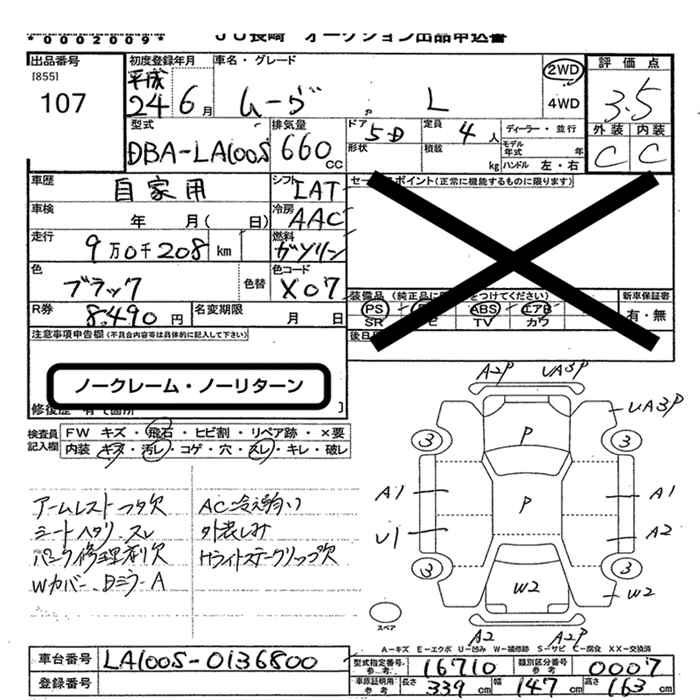 *0002009* JU長崎 オークション出品申込書
出品番号
[855]
107
初度登録年月
平成 24 6月
車名・グレード
ムーヴ L
2WD
4WD
評価点
3.5
外装 内装
C C
型式
DBA-LA100S
排気量
660 CC
ドア
5D
定員
4人
形状
積載
kg
ディーラー・並行
モデル年式 年
ハンドル 左・右
車歴
自家用
シフト
IAT
セールスポイント(正常に機能するものに限ります)
車検
年 月( 日)
冷房
AAC
走行
9万0千208 km
燃料
ガソリン
色
ブラック
色替
色コード
X07
装備品(純正品に
をつけてください)
新車保証書
有・無
PS ABS エアB
SR TV カワ
R券
8,490円
名変期限
月 日
後日
注意事項申告欄(不具合内容等は具体的に記入して下さい)
ノークレーム・ノーリターン
修復歴 有(箇所 )
検査員記入欄
FW キズ・飛石・ヒビ割・リペア跡・×要
内装 キズ・汚レ・コゲ・穴・スレ・キレ・破レ
アームレストフタ欠
シートヘタリ、スレ
パンク修理剤欠
Wカバー、Dミラ-A
AC冷え弱い
外装しみ
HライトステークリップX欠
A2P UA3P
UA3P
3 3
P
A1 P A1
U1 A2
3 3
W2 W2
A2 A2P
スペア
A－キズ E－エクボ U－凹み W－補修跡 S－サビ C－腐食 XX－交換済
車台番号
LA100S-0136800
登録番号
型式指定番号 参考
16710
類別区分番号 参考
0007
車原証明用 参考
長さ 339 cm 幅 147 cm 高さ 163 cm